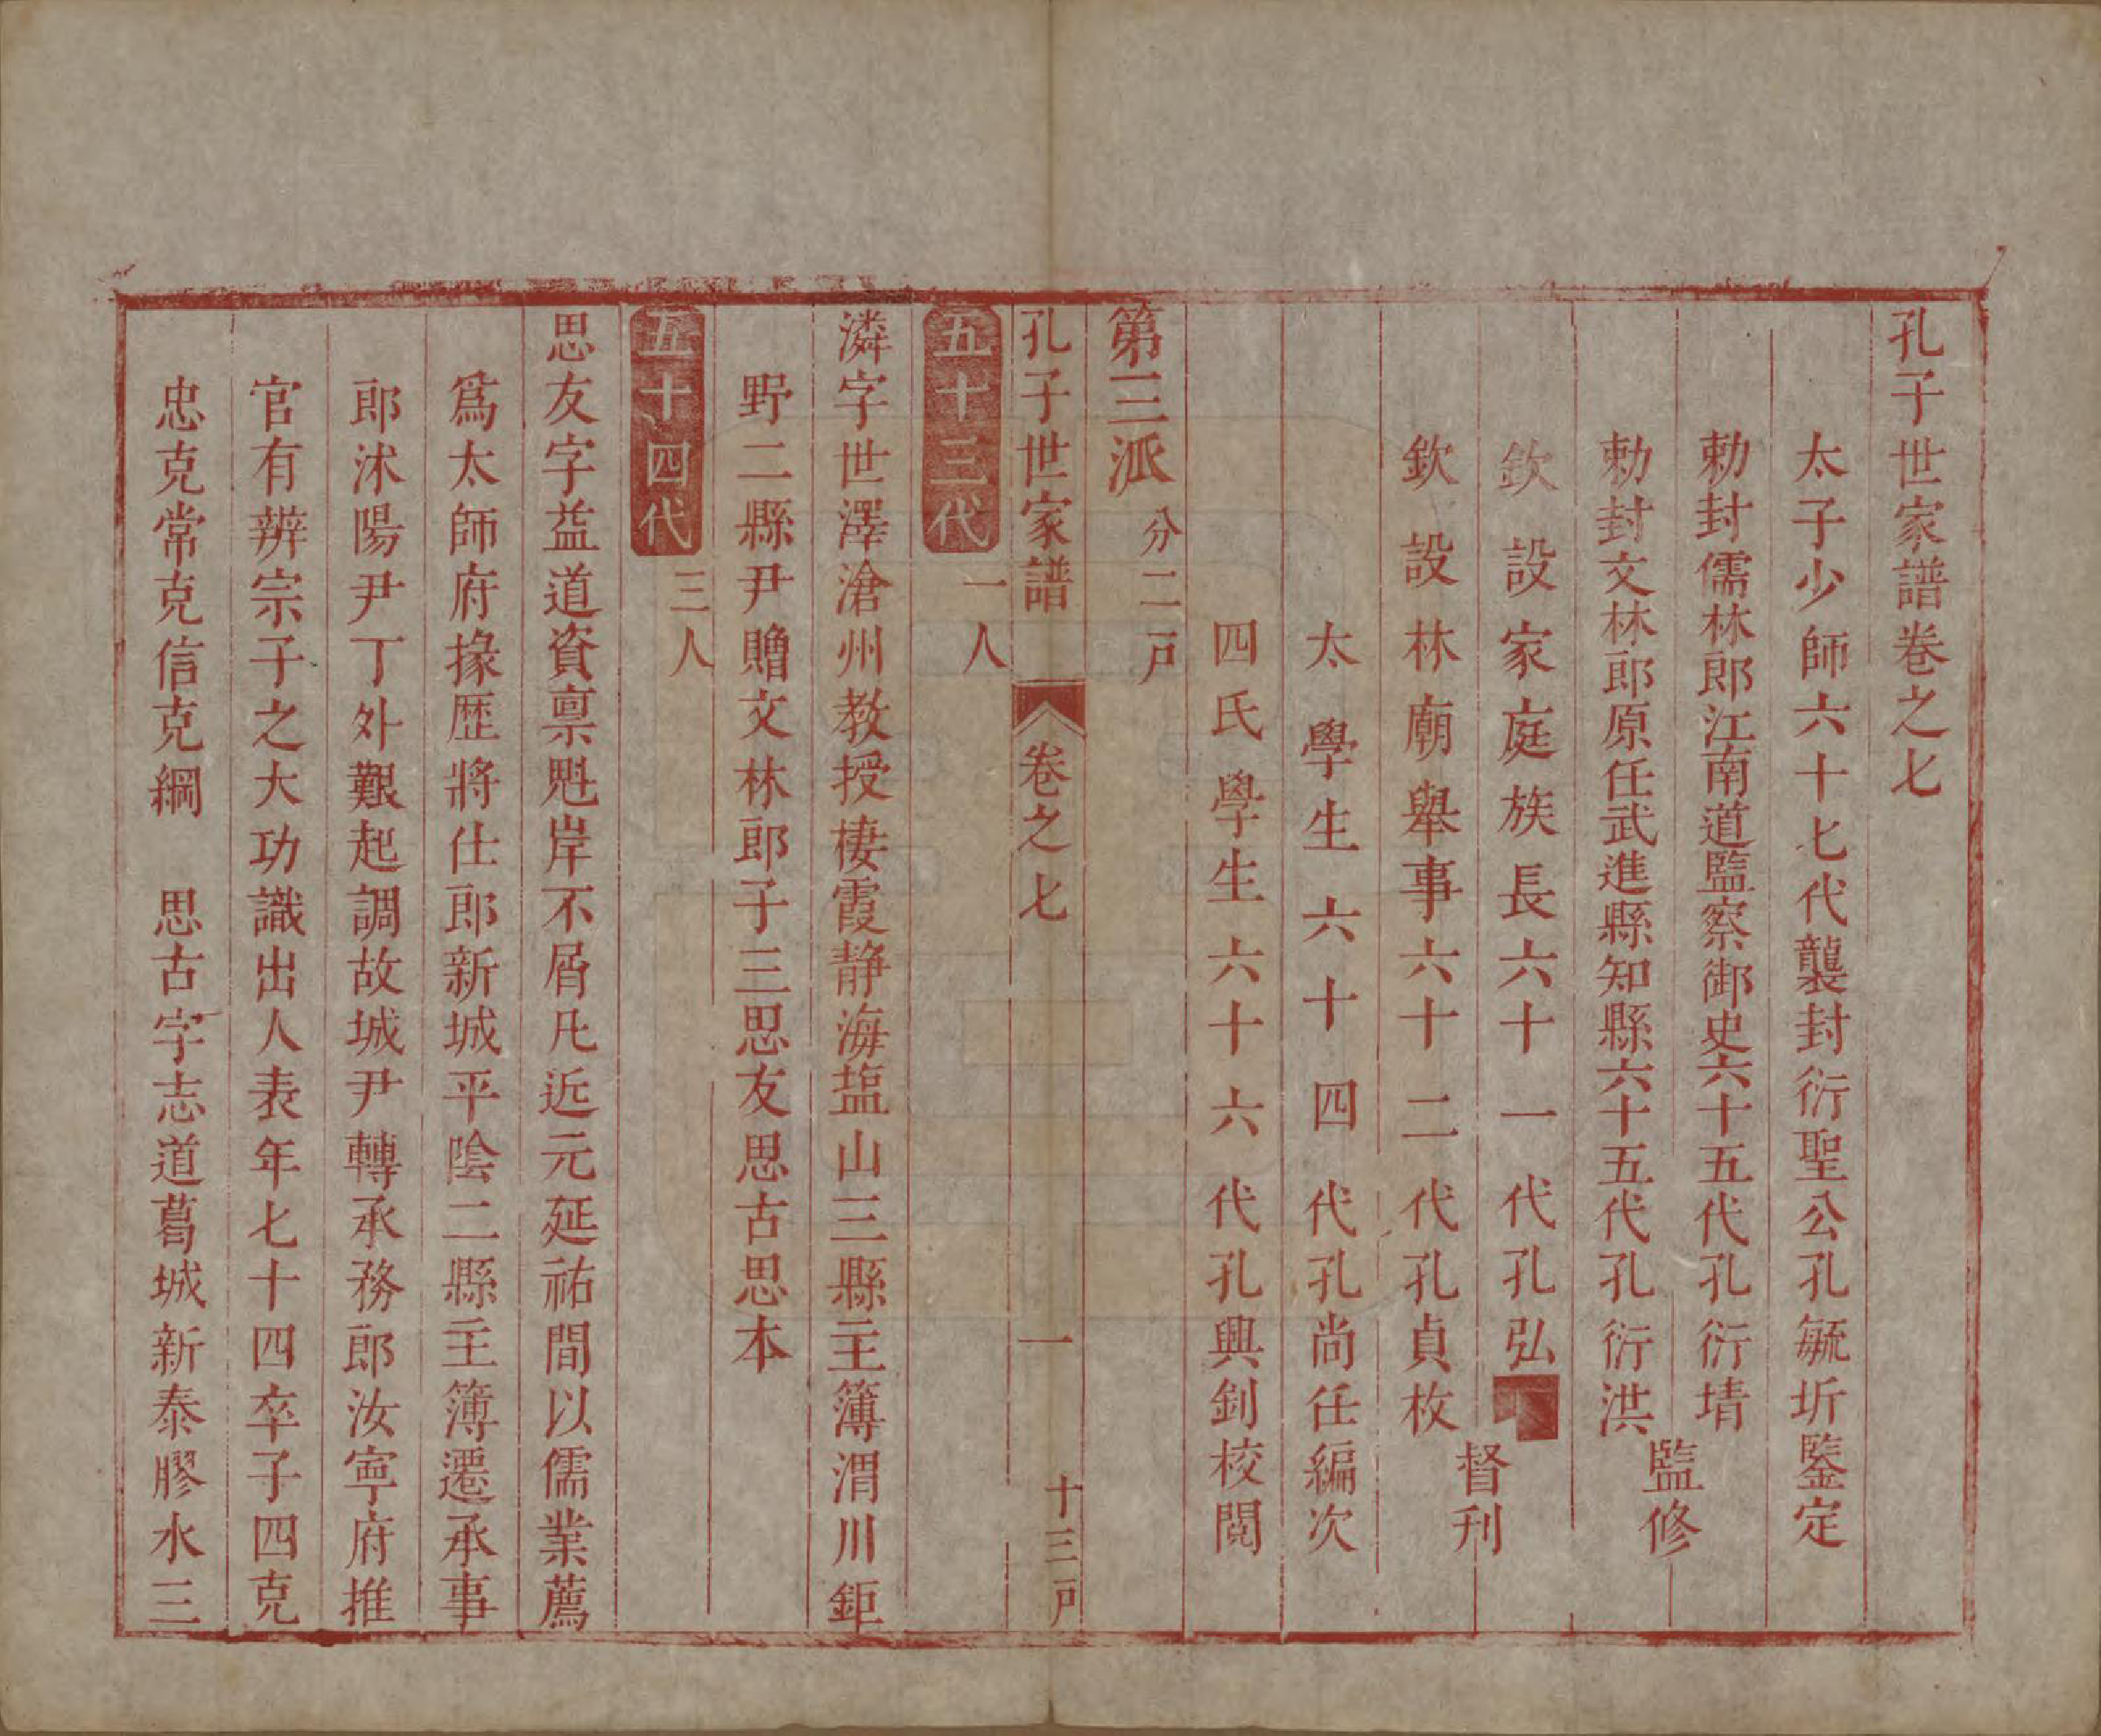 孔子世家譜卷之七
太子少師六十七代襲封衍聖公孔毓圻鑒定
勅封儒林郎江南道監察御史六十五代孔衍㙷
勅封文林郎原任武進縣知縣六十五代孔衍洪
監修
欽設家庭族長六十一代孔弘
欽設林廟舉事六十二代孔貞枚
督刋
太學生六十四代孔尚任編次
四氏學生六十六代孔興釗校閱
第三派 分二戶
孔子世家譜 卷之七 一 十三戶
五十三代 一人
潾字世澤滄州教授棲霞静海塩山三縣主簿渭川鉅
野二縣尹贈文林郎子三思友思古思本
五十四代 三人
思友字益道資禀魁岸不屑凡近元延祐間以儒業薦
爲太師府掾歷將仕郎新城平陰二縣主簿遷承事
郎沭陽尹丁外艱起調故城尹轉承務郎汝寧府推
官有辨宗子之大功識出人表年七十四卒子四克
忠克常克信克綱 思古字志道葛城新泰膠水三